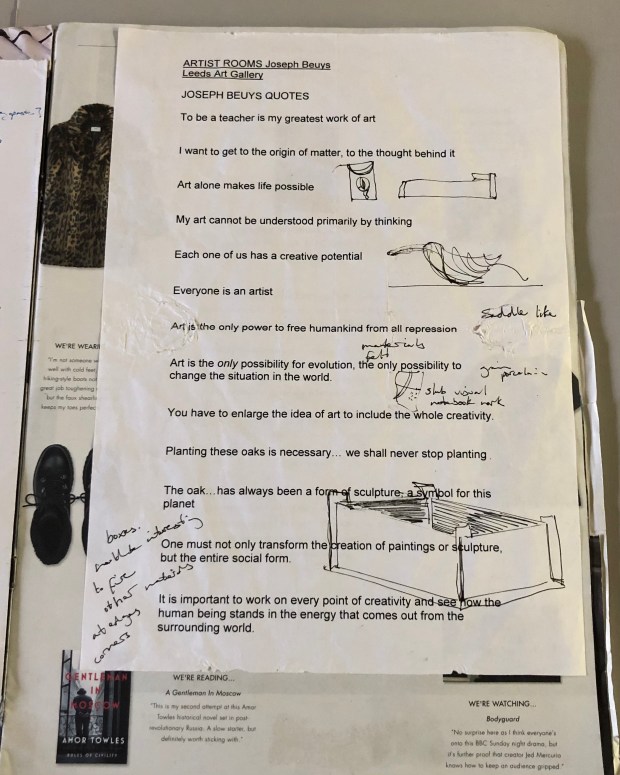 ARTIST ROOMS Joseph Beuys
Leeds Art Gallery
JOSEPH BEUYS QUOTES
To be a teacher is my greatest work of art
I want to get to the origin of matter, to the thought behind it
Art alone makes life possible
My art cannot be understood primarily by thinking
Each one of us has a creative potential
Everyone is an artist
Saddle like
Art is the only power to free humankind from all repression
materials
felt
Art is the only possibility for evolution, the only possibility to
change the situation in the world.
porcelain
slab visual
notebook work
You have to enlarge the idea of art to include the whole creativity.
Planting these oaks is necessary... we shall never stop planting
The oak...has always been a form of sculpture, a symbol for this
planet
One must not only transform the creation of paintings or sculpture,
but the entire social form.
It is important to work on every point of creativity and see how the
human being stands in the energy that comes out from the
surrounding world.
boxes.
interesting
to fire
other materials
at edges
corners
WE'RE WEARI
"I'm not someone w
well with cold feet
hiking-style boots out
great job toughening
but the faux shearli
keeps my toes perfect
GENTLEMAN
IN
MOSCOW
AMOR TOWLES
RULES OF CIVILITY
WE'RE READING...
A Gentleman In Moscow
"This is my second attempt at this Amor
Towles historical novel set in post-
revolutionary Russia. A slow starter, but
definitely worth sticking with."
WE'RE WATCHING...
Bodyguard
"No surprise here as I think everyone's
onto this BBC Sunday night drama, but
it's further proof that creator Jed Mercurio
knows how to keep an audience gripped."